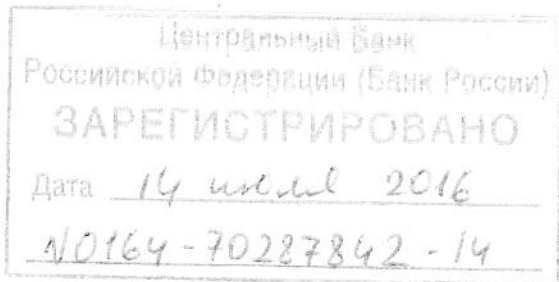 Центральный Банк
Российской Федерации (Банк России)
ЗАРЕГИСТРИРОВАНО
Дата 14 июля 2016
N0164-70287842-14